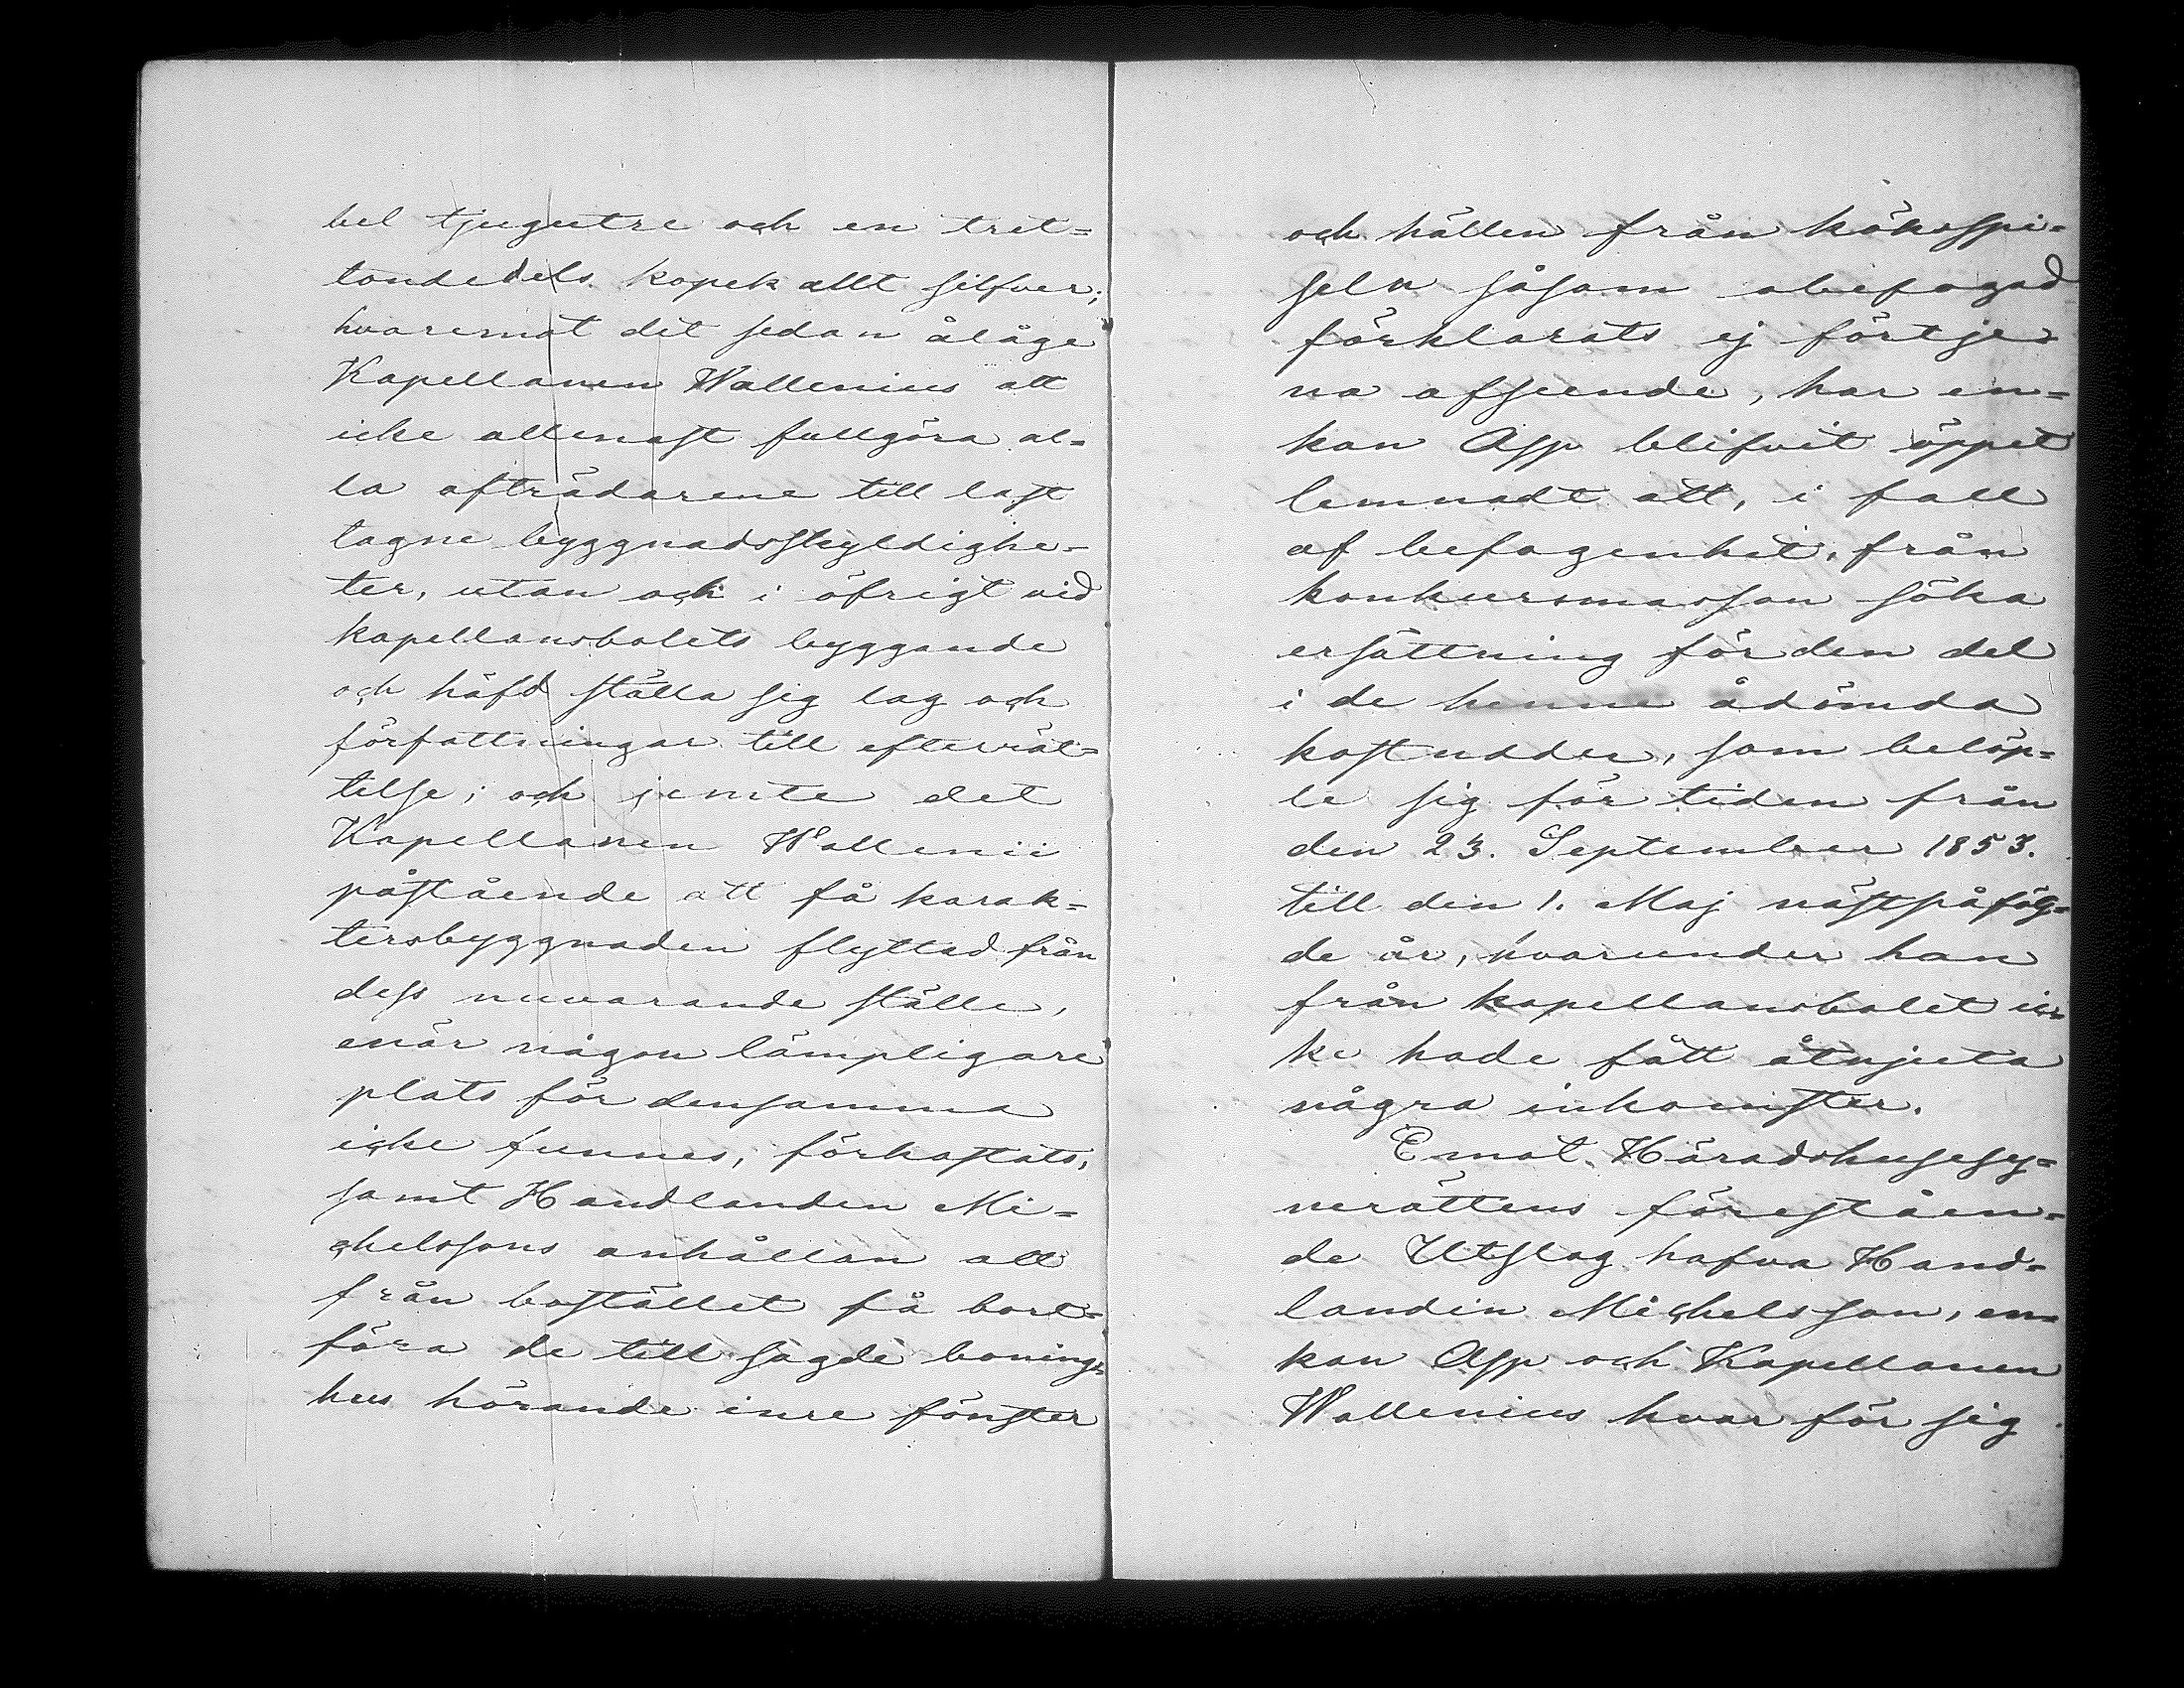 bel tjugutre och en tret=
tondedels kopek allt silfver;
hvaremot det sedan ålåge
Kapellanen Wallenius att
icke allenast fullgöra al=
la afträdarene till last
tagne byggnadsskyldighe=
ter, utan och i öfrigt vid
kapellansbolets byggande
och häfd ställa sig lag och
författningar till efterrät=
telse; och jemte det
Kapellanen Wallenii
påstående att få karak=
tersbyggnaden flyttad från
dess nuvarande ställe,
enär någon lämpligare
plats för densamma
icke funnes, förkastats,
samt Handlanden Mi=
chelssons anhållan att
från bostället få bort=
föra de till sagde bonings=
hus hörande inre fönster
och hällen från köksspi=
seln såsom obefogad
förklarats ej förtje=
na afseende, har en=
kan Asp blifvit öppet
lemnadt att, i fall
af befogenhet, från
konkursmassan söka
ersättning för den del
i de henne ådömda
kostnader, som belöp=
te sig för tiden från
den 23. September 1853.
till den 1. Maj nästpåfög=
de år, hvarunder hon
från kapellansbolet ic=
ke hade fått åtnjuta
några inkomster.
Emot Häradshusesy=
nerättens förestående=
de Utslag hafva Hand=
landen Michelsson, en=
kan Asp och Kapellanen
Wallenius hvar för sig